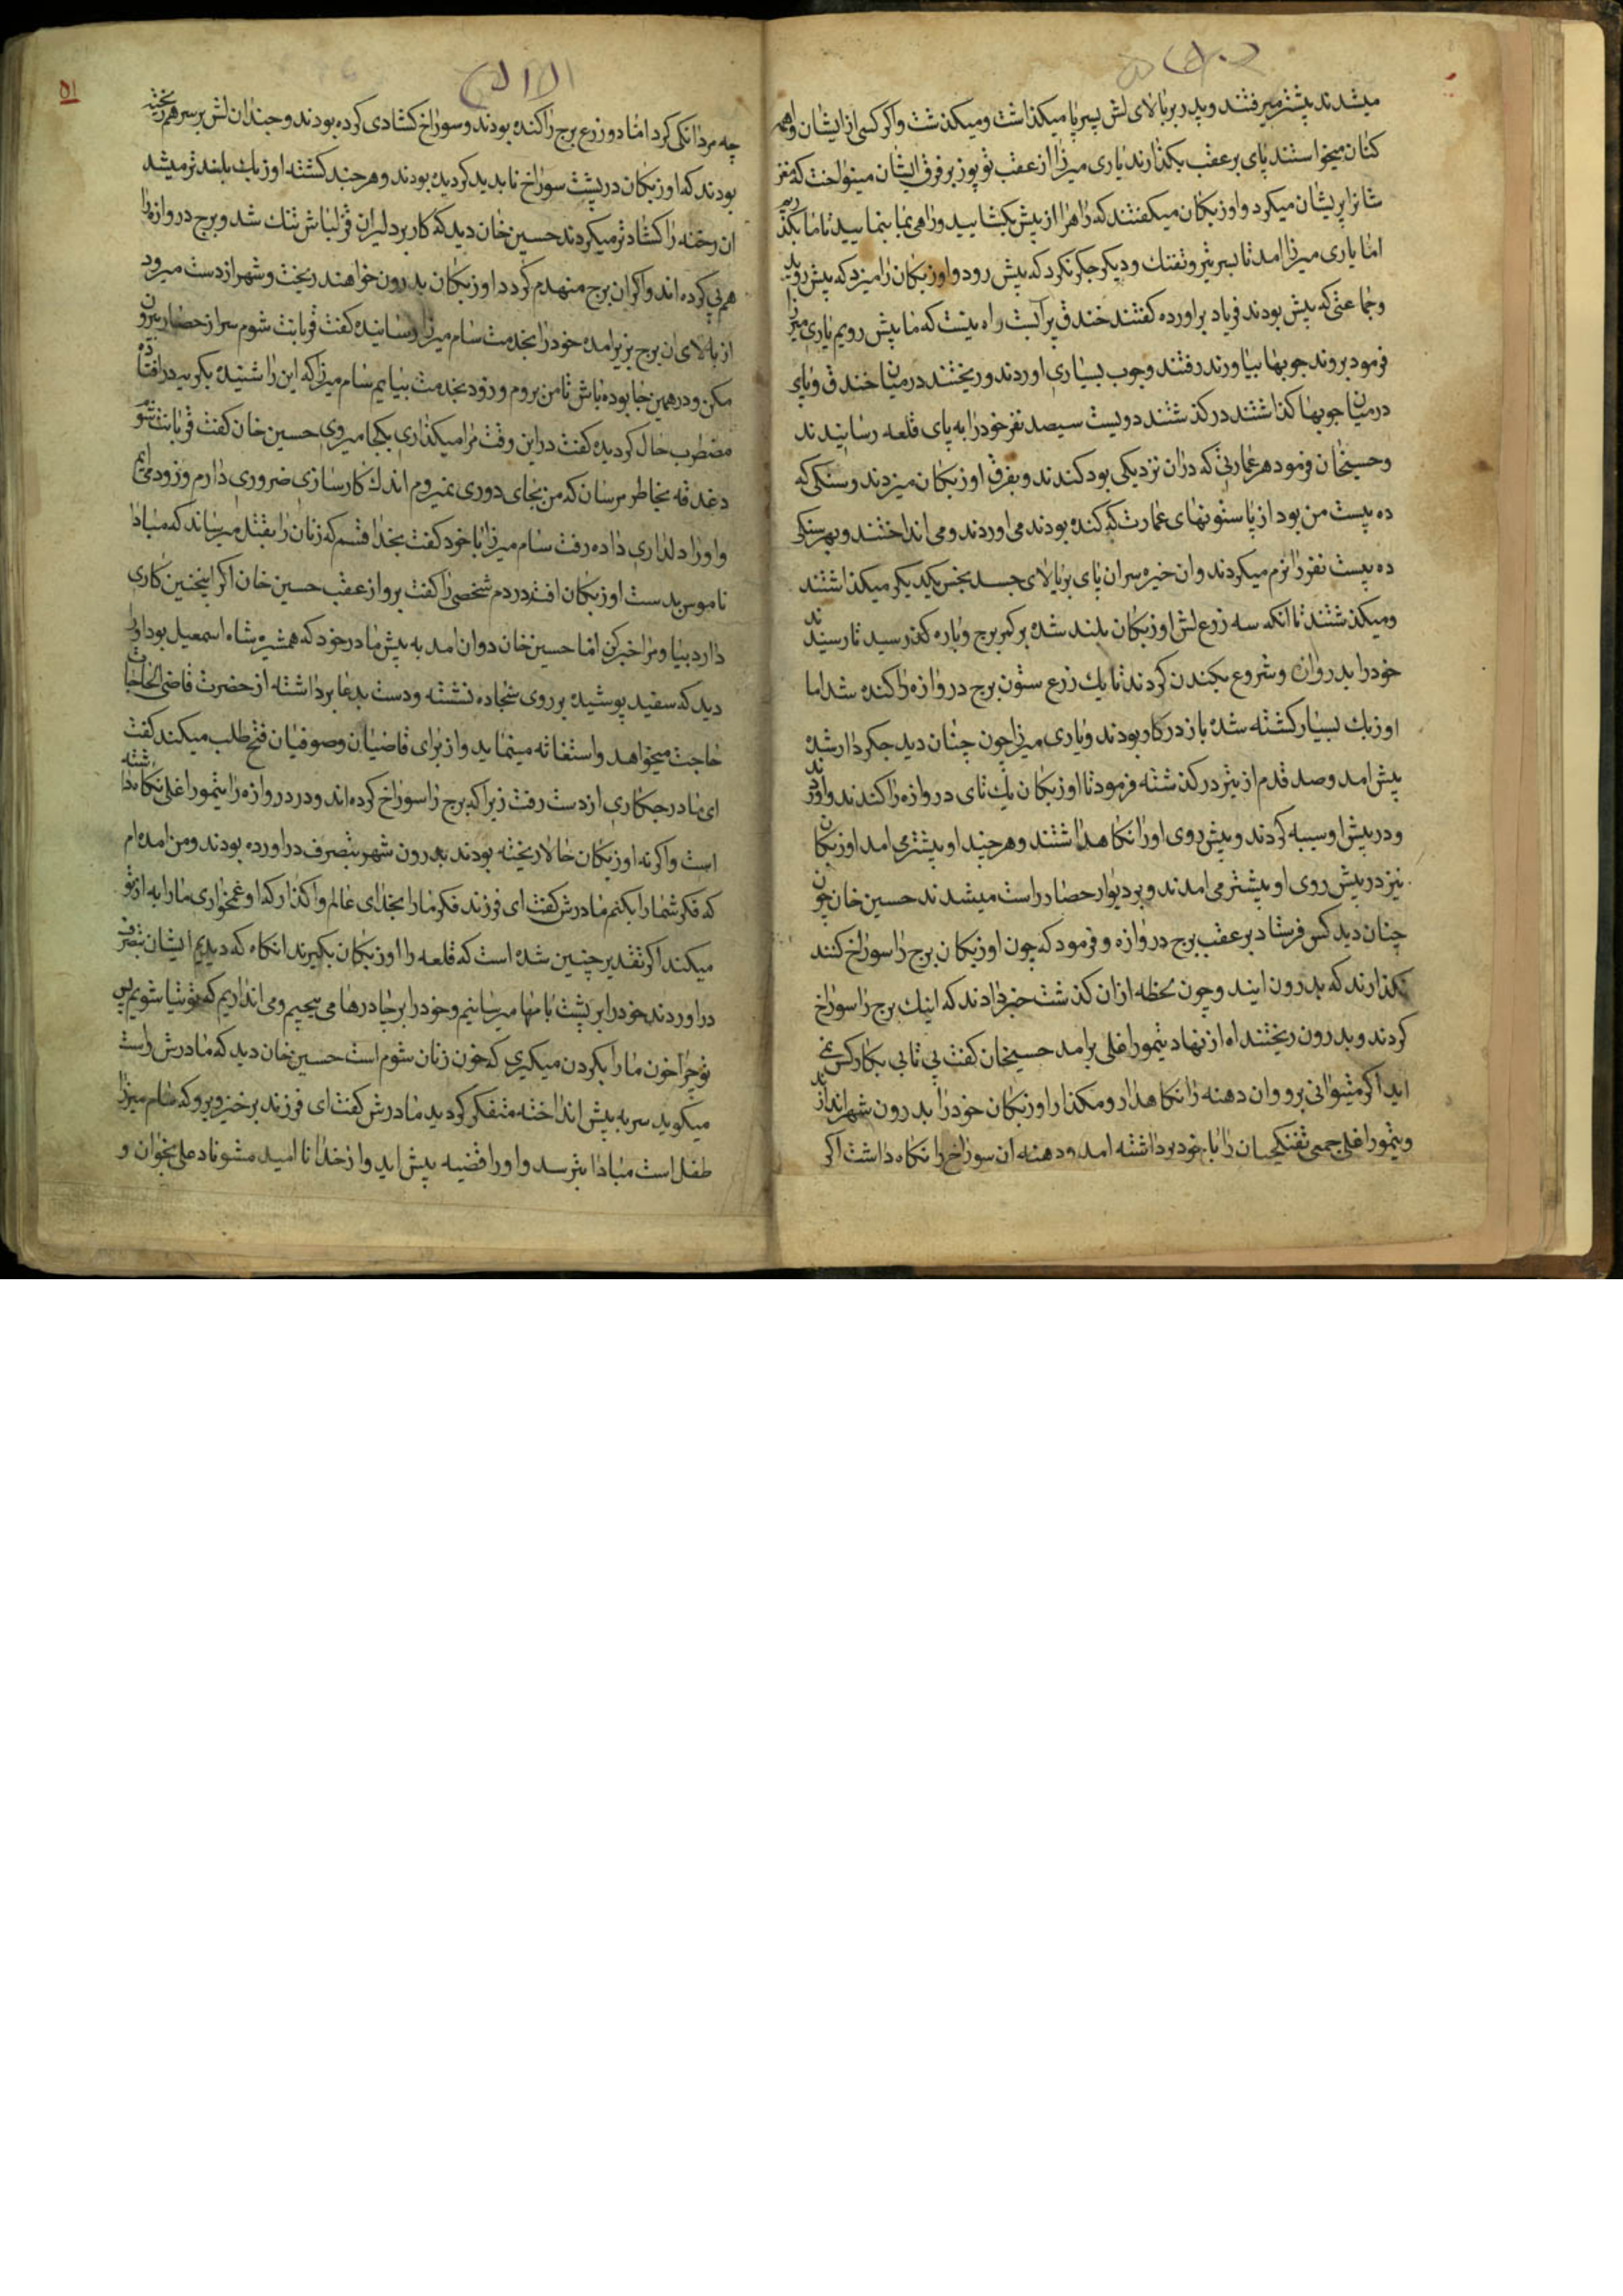 میشدند پیشتر میرفتند و پدر بر بالای لش پسر پا میکذاشت و میکذشت و اکر کسی از ایشان واهمه
کنان میخواستند پای بر عقب بکذارند یاری میرزا از عقب توپوز بر فرق ایشان مینواخت که مغز
شانرا پریشان میکرد و اوزبکان میکفتند که راهرا از پیش بکشایید و راهی بما بنمایید تا ما بکذریم
اما یاری میرزا امد تا بسر تیر و تفنك و دیکر جکر نکرد که پیش رود و اوزبکان را میزد که پیش روید
و جماعتی که پیش بودند فریاد براورده کفتند خندق پر آبست راه نیست که ما پیش رویم یاری میرزا
فرمود بروند جوبها بیاورند رفتند و جوب بسیاری اوردند و ریختند در میان خندق و پای
در میان جوبها کذاشتند در کذشتند دویست سیصد نفر خود را به پای قلعه رسانیدند
و حسینخان فرمود هر عمارتی که دران نزدیکی بود کندند و بفرق اوزبکان میزدند و سنکی که
ده بیست من بود از پا ستونهای عمارت که کنده بودند می اوردند و می انداختند و بهر سنکی
ده بیست نفر را نرم میکردند و ان خیره سران پای بر بالای جسد نجس یکدیکر میکذاشتند
و میکذشتند تا انکه سه زرع لش اوزبکان بلند شده بر کمر برج و باره کذر رسید تا رسیدند
خود را بدروان و شروع بکندن کردند تا یك زرع ستون برج دروازه را کنده شد اما
اوزبك بسیار کشته شده باز در کار بودند و یاری میرزا چون چنان دید جکردار شده
پیش امد و صد قدم از تیر در کذشته فرمود تا اوزبکان یك تای دروازه را کندند و اوردند
و در پیش او سیبه کردند و پیش روی او را نکاهداشتند و هر چند او پیشتر می امد اوزبکان
نیز در پیش روی او پیشتر می امدند و بر دیوار حصار راست میشدند حسین خان چون
چنان دید کس فرستاد بر عقب برج دروازه و فرمود که چون اوزبکان برج را سوراخ کنند
نکذارند که بدرون ایند و چون لحظه ازان کذشت خبر دادند که اینك برج را سوراخ
کردند و بدرون ریختند اه از نهاد تیمور اغلی برامد حسینخان کفت بی تابی بکار کس نمی
اید اکر میتوانی برو و ان دهنه را نکاهدار و مکذار اوزبکان خود را بدرون شهر اندازند
و تیمور اغلی جمعی تفنکچیان را با خود برداشته امد و دهنه ان سوراخ را نکاه داشت اکر
۵۱
چه مردانکی کرد اما دو زرع برج را کنده بودند و سوراخ کشادی کرده بودند و چندان لش بر سر هم ریخته
بودند که اوزبکان در پشت سوراخ نابدید کردیده بودند و هر چند کشته اوزبك بلند تر میشد
ان رخنه را کشاد تر میکردند حسین خان دید که کار بر دلیران قزلباش تنك شد و برج دروازه را
هم پی کرده اند و اکر ان برج منهدم کردد اوزبکان بدرون خواهند ریخت و شهر از دست میرود
از بالای ان برج بزیر امده خود را بخدمت سام میرزا رسانیده کفت قربانت شوم سر از حصار بیرون
مکن و در همین جا بوده باش تا من بروم و زود بخدمت بیایم سام میرزا که این را شنیده بکریه در افتاده
مضطرب حال کردیده کفت در این وقت مرا میکذاری بکجا میروی حسین خان کفت قربانت شوم
دغدقه بخاطر مرسان که من بجای دوری نمیروم اندك کارسازی ضروری دارم و زود می ایم
و او را دلداری داده رفت سام میرزا با خود کفت بخدا قسم که زنان را بقتل میرساند که مبادا
ناموس بدست اوزبکان افتد در دم شخصی را کفت برو از عقب حسین خان اکر اینچنین کاری
دارد بیا و مرا خبر کن اما حسین خان دوان امد به پیش مادر خود که همشیره شاه اسمعیل بود او را
دید که سفید پوشیده بر روی سجاده نشسته و دست بدعا برداشته از حضرت قاضی الحاجات
حاجت میخواهد و استغاثه مینماید و از برای قاضیان و صوفیان فتح طلب میکند کفت
ای مادر جکاری از دست رفت زیرا که برج را سوراخ کرده اند و در دروازه را تیمور اغلی نکاه داشته
است و اکر نه اوزبکان حالا ریخته بودند بدرون شهر بتصرف دراورده بودند و من امده ام
که فکر شما را بکنم مادرش کفت ای فرزند فکر ما را بخدای عالم واکذار که او غمخواری ما را به از تو
میکند اکر تقدیر چنین شده است که قلعه را اوزبکان بکیرند انکاه که دیدیم ایشان بتصرف
در اوردند خود را بر پشت بامها میرسانیم و خود را بر چادرها می پیچیم و می اندازیم که توتیا شویم پس
تو چرا خون ما را بکردن میکیری که خون زنان شوم است حسین خان دید که مادرش راست
میکوید سر به پیش انداخته متفکر کردید مادرش کفت ای فرزند برخیز و برو که سام میرزا
طفل است مبادا بترسد و او را قضیه پیش اید و از خدا نا امید مشو ناد علی بخوان و